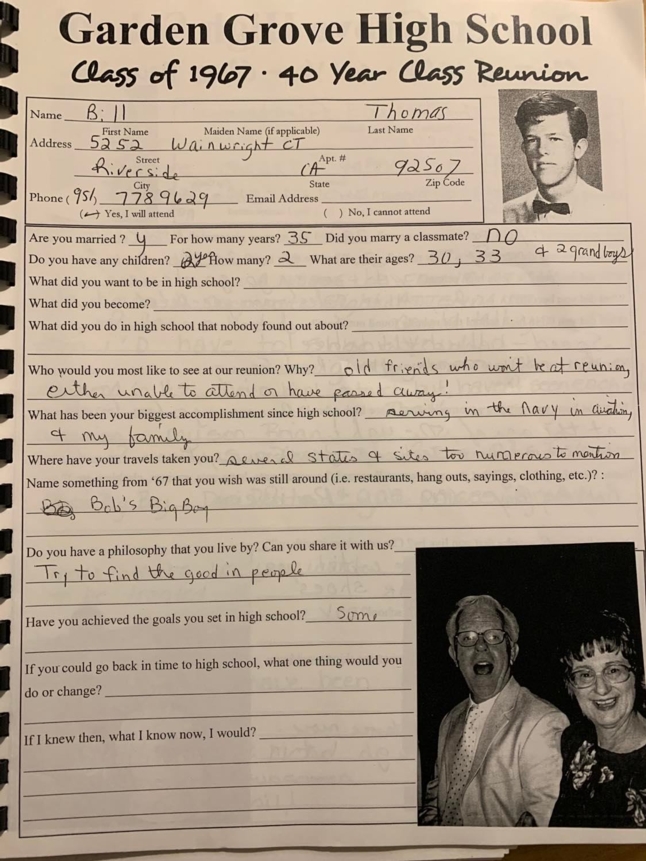 Garden Grove High School
Class of 1967 · 40 Year Class Reunion
Name Bill Thomas
First Name Maiden Name (if applicable) Last Name
Address 5252 Wainwright CT
Street Apt. #
Riverside CA 92507
City State Zip Code
Phone (951) 7789629 Email Address
(✓) Yes, I will attend ( ) No, I cannot attend
Are you married ? y For how many years? 35 Did you marry a classmate? no
Do you have any children? yes How many? 2 What are their ages? 30, 33 & 2 grandboys
What did you want to be in high school?
What did you become?
What did you do in high school that nobody found out about?
Who would you most like to see at our reunion? Why? old friends who won't be at reunion,
either unable to attend or have passed away!
What has been your biggest accomplishment since high school? serving in the Navy in aviation,
& my family
Where have your travels taken you? several states & sites too numerous to mention
Name something from '67 that you wish was still around (i.e. restaurants, hang outs, sayings, clothing, etc.)? :
Bob's Big Boy
Do you have a philosophy that you live by? Can you share it with us?
Try to find the good in people
Have you achieved the goals you set in high school? Some
If you could go back in time to high school, what one thing would you
do or change?
If I knew then, what I know now, I would?